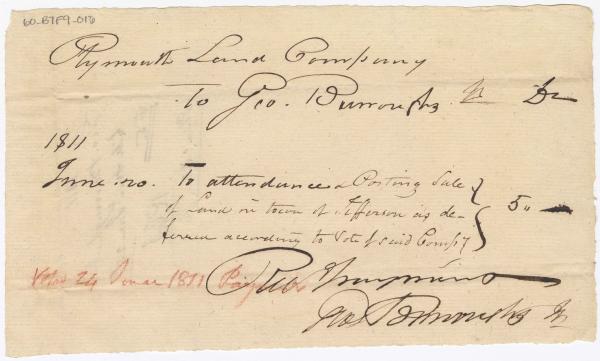 60-B7F9-010
Plymouth Land Company
To Geo. Burroughs Jr Dr
1811
June 20. To attendance & Posting Sale
of Land in town of Jefferson as de-
ferred according to Vote of said Compy 5"
24 1811
Recd Payment
Geo Burroughs Jr